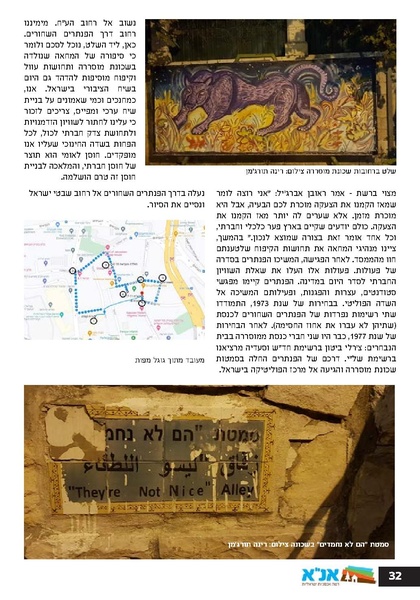 נשוב אל רחוב הע"ח. מימיננו
רחוב דרך הפנתרים השחורים.
כאן, ליד השלט, נוכל לסכם ולומר
כי סיפורה של המחאה שנולדה
בשכונת מוסררה ותחושות עוול
וקיפוח מוסיפות להדהד גם היום
בשיח הציבורי בישראל. אנו,
כמחנכים וכמי שאמונים על בניית
שיח ערכי ומפייס, צריכים לזכור
כי עלינו לחתור לשוויון הזדמנויות
ולתחושת צדק חברתי לכול, לכל
הפחות בשדה החינוכי שעליו אנו
מופקדים. חוסן לאומי הוא תוצר
של חוסן חברתי, והמלאכה לבניית
חוסן זה טרם הושלמה.
שלט ברחובות שכונת מוסררה צילום: רינה תורג'מן
נעלה בדרך הפנתרים השחורים אל רחוב שבטי ישראל
ונסיים את הסיור.
מעובד מתוך גוגל מפות
מצוי ברשת - אמר ראובן אברג'יל: "אני רוצה לומר
שמאז הקמנו את הצעקה מוכרת לכם הבעיה, אבל היא
מוכרת מזמן. אלא שערים לה יותר מאז הקמנו את
הצעקה. כולם יודעים שקיים בארץ פער כלכלי וחברתי,
וכל אחד אומר זאת בצורה שמוצא לנכון." בהמשך,
ציינו מנהיגי המחאה את תחושות הקיפוח שלטענתם
חוו מהממסד. לאחר הפגישה, המשיכו הפנתרים בסדרה
של פעולות. פעולות אלו העלו את שאלת השוויון
החברתי לסדר היום במדינה. הפנתרים קיימו מפגשי
סטודנטים, עצרות והפגנות, ופעילותם המשיכה אל
השדה הפוליטי. בבחירות של שנת 1973, התמודדו
שתי רשימות נפרדות של הפנתרים השחורים לכנסת
(שתיהן לא עברו את אחוז החסימה). לאחר הבחירות
של שנת 1977, כבר היו שני חברי כנסת ממוסררה בבית
הנבחרים: צ'רלי ביטון ברשימת חד"ש וסעדיה מרציאנו
ברשימת של"י. דרכם של הפנתרים החלה בסמטות
שכונת מוסררה והגיעה אל מרכז הפוליטיקה בישראל.
סמטת "הם לא נחמ
"They're Not Nice" Alley
סמטת "הם לא נחמדים" בשכונה צילום: רינה תורג'מן
אנ"א
32